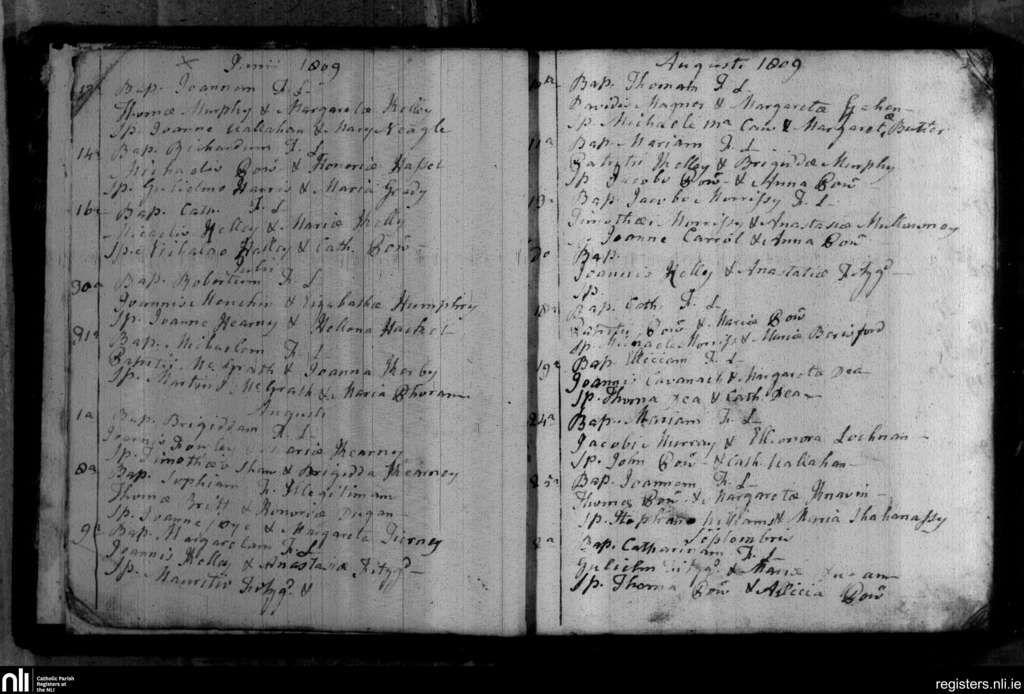 Junii 1809
Bap. Joannem F. L
Thomæ Murphy & Margaretæ Kelly
Sp. Joanne Callahan & Mary Neagle
14a Bap. Richardum F. L
Michaelis Bow & Honoriæ Haket
Sp. Gulielmo Harris & Maria Grady
16a Bap. Cath. F. L
Kelly & Mariæ Kelly
Sp. Kelly & Cath. Bow
Julii
30a Bap. Robertum F. L
Joannis & Elizabethæ Humphry
Sp. Joanne Kearny & Hellena Hacket
31a Bap. Michaelem F. L
McGrath & Joanna Kerby
Sp. Martin McGrath & Maria
Augusti
1a Bap. Brigiddam F. L
Joannis & Mariæ Kearney
Sp. Timotheo Shaw & Brigidda Kearney
8a Bap. Sophiam F. Illegitimam
Thomæ Britt & Honoriæ Dugan
Sp. Joanne Dye & Margareta Tierney
9a Bap. Margaretam F. L
Joannis Kelley & Anastasiæ Fitzgd
Sp. Mauritio Fitzgd &
Augusti 1809
Bap. Thomam F. L
Davidis Magner & Margaretæ
Sp. Michaele & Margareta Butler
11a Bap. Mariam F. L
Patritii Kelley & Brigiddæ Murphy
Sp. Jacobo Bow & Anna Bow
13a Bap. Jacobum Morrissy F. L
Timothæi Morrissy & Anastasiæ Mullowney
Joanne Carrol & Anna Bow
Do Bap.
Joannis Kelley & Anastasiæ Fitzgd
Sp.
18a Bap. Cath. F. L
Patritii Bow & Mariæ Bow
Sp. Michaele & Maria Beresford
19a Bap. F. L
Joannis Cavanagh & Margareta Dea
Sp. Thoma Dea & Cath. Dea
24a Bap. Mariam F. L
Jacobi Murray & Elleonora Lochnan
Sp. John Bow & Cath. Callahan
25a Bap. Joannem F. L
Thomæ Bow & Margaretæ
Sp. Stephano Williams & Maria Shahanassy
Septembris
2a Bap. Catharinam F. L
Gulielmi Fitzgd & Mariæ
Sp. Thoma Bow & Ailicia Bow
nli
Catholic Parish
Registers at
the NLI
registers.nli.ie